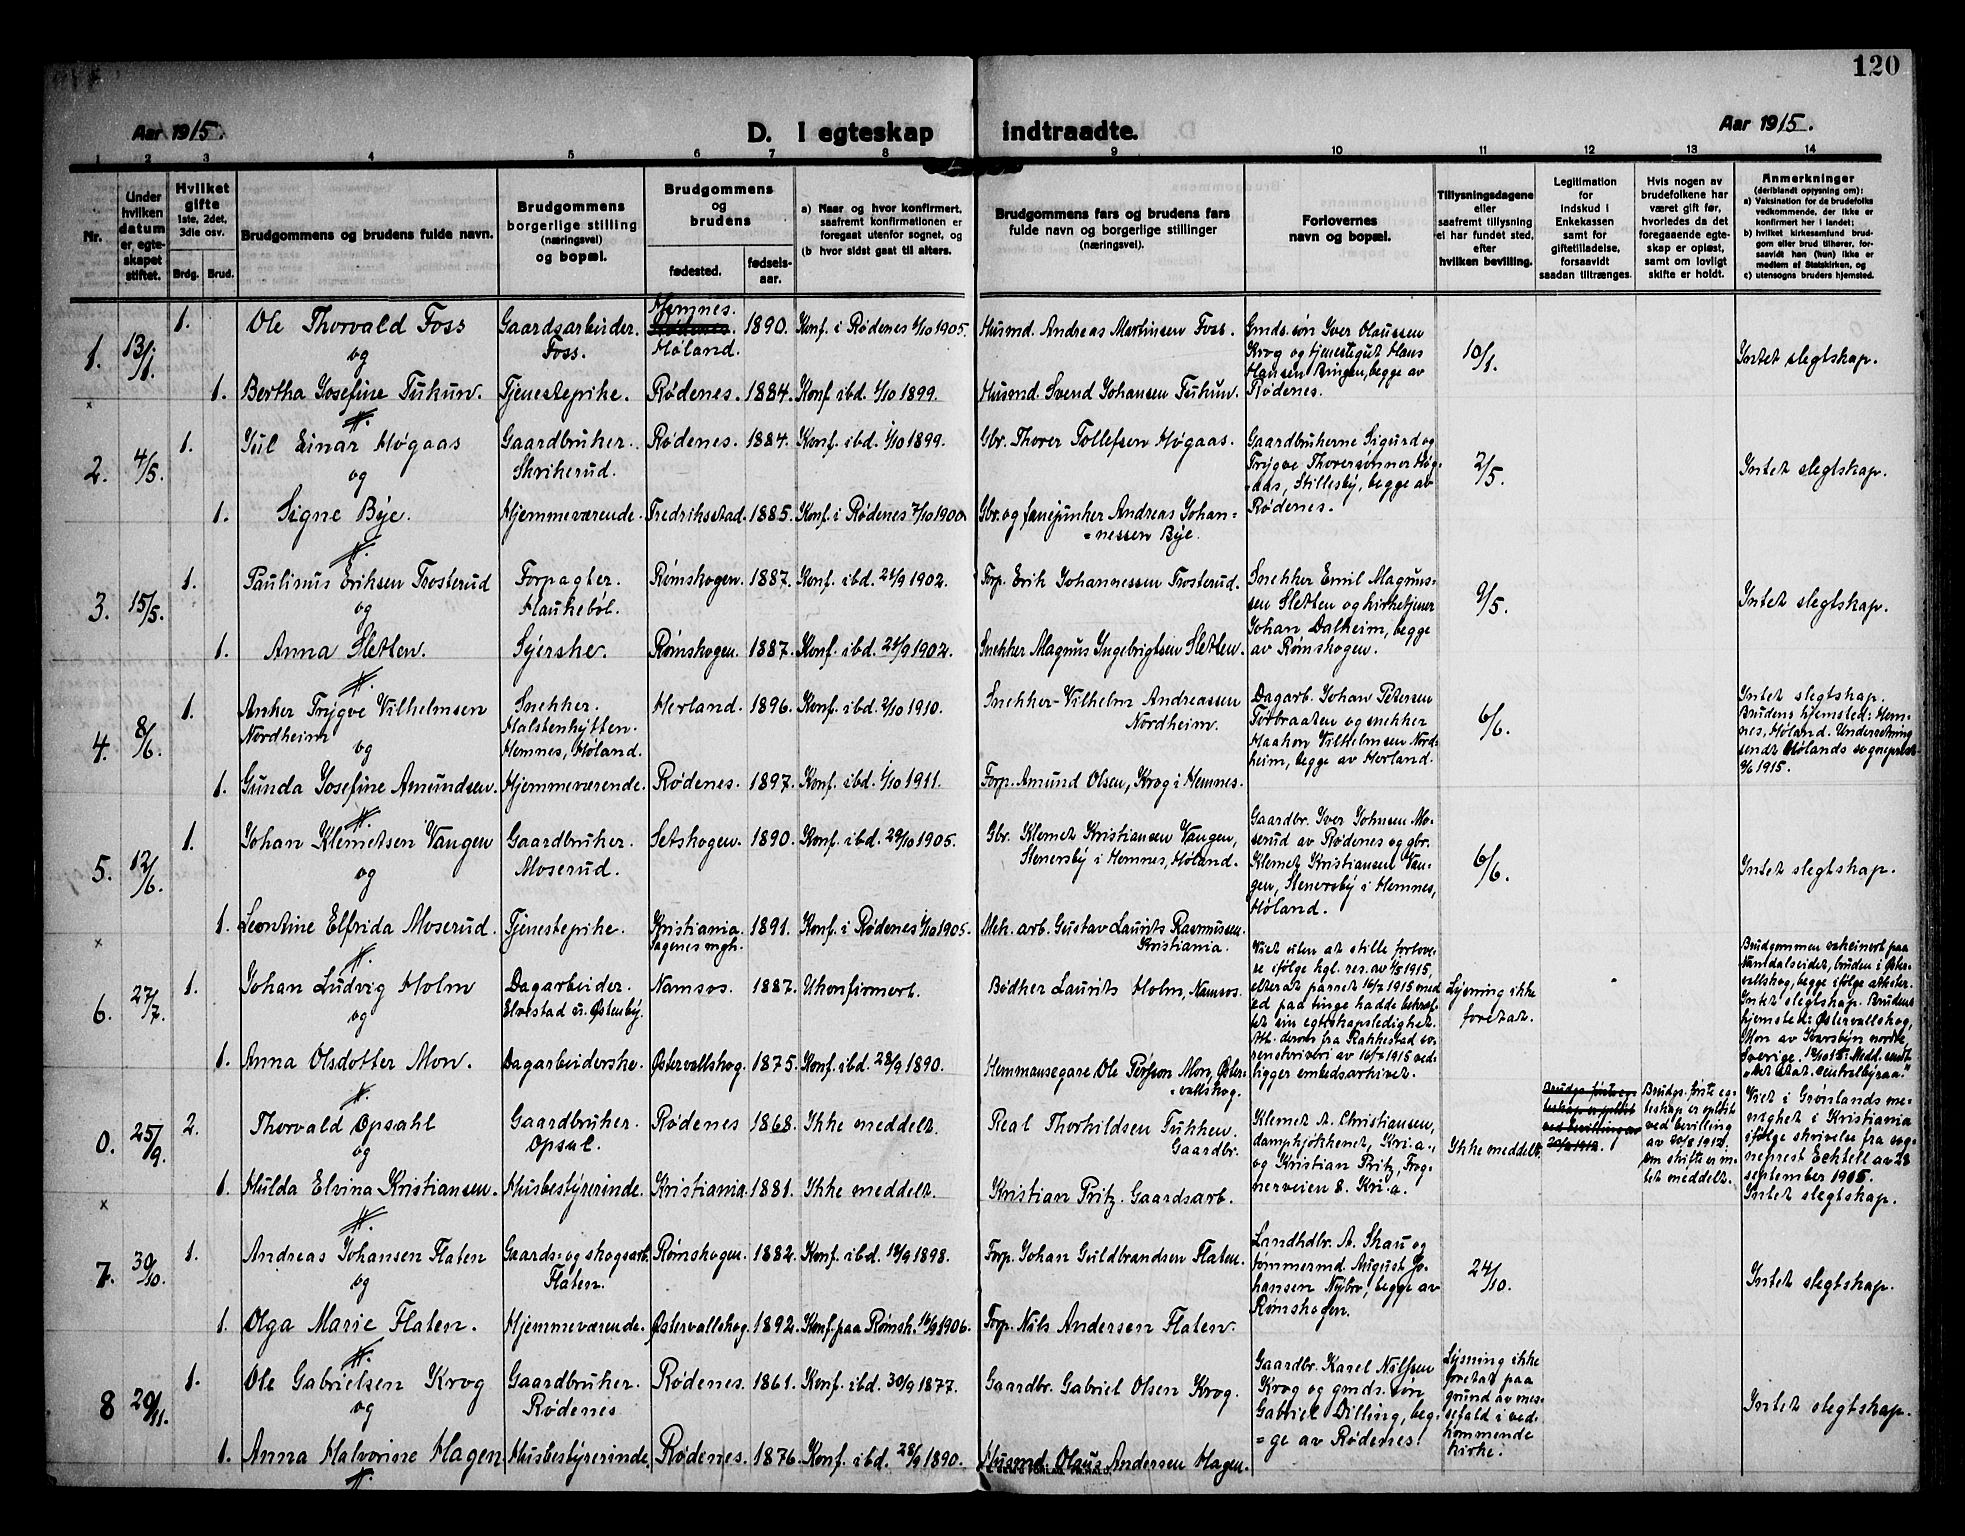 120
Aar 1915.
D. I egteskap indtraadte.
Aar 1915.
1 2 3 4 5 6 7 8 9 10 11 12 13 14
Nr.
Under hvilken datum er egteskapet stiftet.
Hvilket gifte
1ste, 2det, 3die osv.
Brdg. Brud.
Brudgommens og brudens fulde navn.
Brudgommens borgerlige stilling (næringsvei) og bopæl.
Brudgommens og brudens
fødested.
fødsels-aar.
a) Naar og hvor konfirmert, saafremt konfirmationen er foregaat utenfor sognet, og
(b hvor sidst gaat til alters.
Brudgommens fars og brudens fars fulde navn og borgerlige stillinger (næringsvei).
Forlovernes navn og bopæl.
Tillysningsdagene eller saafremt tillysning ei har fundet sted, efter hvilken bevilling.
Legitimation for Indskud i Enkekassen samt for giftetilladelse, forsaavidt saadan tiltrænges.
Hvis nogen av brudefolkene har været gift før, hvorledes da det foregaaende egteskap er opløst, samt om lovligt skifte er holdt.
Anmerkninger
(deriblandt oplysning om):
a) Vaksination for de brudefolks vedkommende, der ikke er konfirmert her i landet;
b) hvilket kirkesamfund brudgom eller brud tilhører, forsaavidt han (hun) ikke er medlem af Statskirken, og
c) utensogns bruders hjemsted.
1. 13/1. 1. Ole Thorvald Foss Gaardsarbeider. Foss. Hemnes. Rødenes. Høland. 1890. Konf. i Rødenes 1/10 1905. Husmd. Andreas Martinsen Foss.
og
1. Bertha Josefine Tukun. Tjenestepike. Rødenes. 1884. Konf. ibd. 1/10 1899. Husmd. Svend Johansen Tukun.
Gmds. søn Iver Olaussen Krog og tjenestegut Hans Hansen Ringen, begge av Rødenes.
10/1.
Intet slegtskap.
2. 4/5. 1. Jul Einar Høgaas Gaardbruker. Skrikerud. Rødenes. 1884. Konf. ibd. 1/10 1899. Gbr. Thorer Tollefsen Høgaas.
og
1. Signe Bye. Hjemmeværende. Fredrikstad. 1885. Konf. i Rødenes 7/10 1900. Gbr. og fanejunker Andreas Johan=
=nessen Bye.
Gaardbrukerne Sigurd og Trygve Thorersønner Høgaas, Stillesby, begge av Rødenes.
2/5.
Intet slegtskap.
3. 15/5. 1. Paulinus Eriksen Trosterud Forpagter. Haukebøl. Rømskogen. 1887. Konf. ibd. 21/9 1902. Forp. Erik Johannessen Trosterud.
og
1. Anna Sletten. Syerske. Rømskogen. 1887. Konf. ibd. 21/9 1902. Snekker Magnus Ingebrigtsen Sletten.
Snekker Emil Magnussen Sletten og kirketjener Johan Dalheim, begge av Rømskogen.
9/5.
Intet slegtskap.
4. 8/6. 1. Anker Trygve Vilhelmsen Nordheim Snekker. Halstenhytten. Hemnes, Høland. Herland. 1896. Konf. ibd. 2/10 1910. Snekker Vilhelm Andreassen Nordheim.
og
1. Gunda Josefine Amundsen. Hjemmeværende. Rødenes. 1897. Konf. ibd. 1/10 1911. Forp. Amund Olsen, Krog i Hemnes.
Dagarb. Johan Petersen Torbraaten og snekker Haakon Vilhelmsen Nordheim, begge av Herland.
6/6.
Intet slegtskap. Brudens hjemsted: Hemnes, Høland. Underretning sendt Hølands sogneprest 9/6 1915.
5. 12/6. 1. Johan Klemetsen Vangen Gaardbruker. Moserud. Setskogen. 1890. Konf. ibd. 29/10 1905. Gbr. Klemet Kristiansen Vangen, Stenersby i Hemnes, Høland.
og
1. Leontine Elfrida Moserud. Tjenestepike. Kristiania. Sagenes mgh. 1891. Konf. i Rødenes 1/10 1905. Mek. arb. Gustav Laurits Rasmussen. Kristiania.
Gaardbr. Iver Johnsen Moserud av Rødenes og gbr. Klemet Kristiansen Vangen, Stenersby i Hemnes, Høland.
6/6.
Intet slegtskap.
6. 27/7. 1. Johan Ludvig Holm Dagarbeider. Elvestad u. Østenby. Namsos. 1887. Ukonfirmert. Bødker Laurits Holm, Namsos.
og
1. Anna Olsdotter Mon. Dagarbeiderske. Østervallskog. 1875. Konf. ibd. 28/9 1890. Hemmansegare Ole Persson Mon, Østervallskog.
Viet uten at stille forlovere ifølge kgl. res. av 1/5 1915, efter at parret 16/7 1915 med ed paa tinge hadde bekræftet sin egteskapsledighet. Att. derom fra Rakkestad sorenskriveri av 16/7 1915 vedligger embedsarkivet.
Lysning ikke foretat.
Brudgommen vakcinert paa Namdalseidet, bruden i Østervallskog, begge ifølge attester. Intet slegtskap. Brudens hjemsted: Østervallskog, Mon av Ivarsbyn nordre, Sverige. Medl. sendt
0. 25/9. 2. Thorvald Opsahl Gaardbruker. Opsal. Rødenes 1868. Ikke meddelt. Real Thorkildsen Tukken. Gaardbr.
og
1. Hilda Elvina Kristiansen. Husbestyrerinde. Kristiania. 1881. Ikke meddelt. Kristian Pritz. Gaardsarb.
Klemet A. Christiansen, dampkjøkkenet, Kr.i.a., og Kristian Pritz, Frognerveien 8. Kr.i.a.
Ikke meddelt.
Brudgs. første egteskap er opløst ved bevilling av 20/8 1912.
Brudgs. første egteskap er opløst ved bevilling av 20/8 1912, om skifte er intet meddelt.
Viet i Grønlands menighet i Kristiania ifølge skrivelse fra sogneprest Echtell av 28 september 1915. Intet slegtskap.
7. 30/10. 1. Andreas Johansen Flaten Gaards- og skogsarb. Flaten. Rømskogen. 1882. Konf. ibd. 18/9 1898. Forp. Johan Guldbrandsen Flaten.
og
1. Olga Marie Flaten. Hjemmeværende. Østervallskog. 1892. Konf. paa Rømsk. 16/9 1906. Forp. Nils Andersen Flaten.
Landhdbr. A. Skau og tømmermd. August Johansen Nybro, begge av Rømskogen.
24/10.
Intet slegtskap.
8 20/11. 1. Ole Gabrielsen Krog Gaardbruker. Rødenes Rødenes. 1861. Konf. ibd. 30/9 1877. Gaardbr. Gabriel Olsen Krog.
og
1. Anna Halvorine Hagen Husbestyrerinde. Rødenes. 1876. Konf. ibd. 28/9 1890. Husmd. Olaus Andersen Hagen.
Gaardbr. Karel Nilssen Krog og gmds. søn Gabriel Dilling, beg=
=ge av Rødenes.
Lysning ikke foretat paa grund av messefald i vedkommende kirke.
Intet slegtskap.